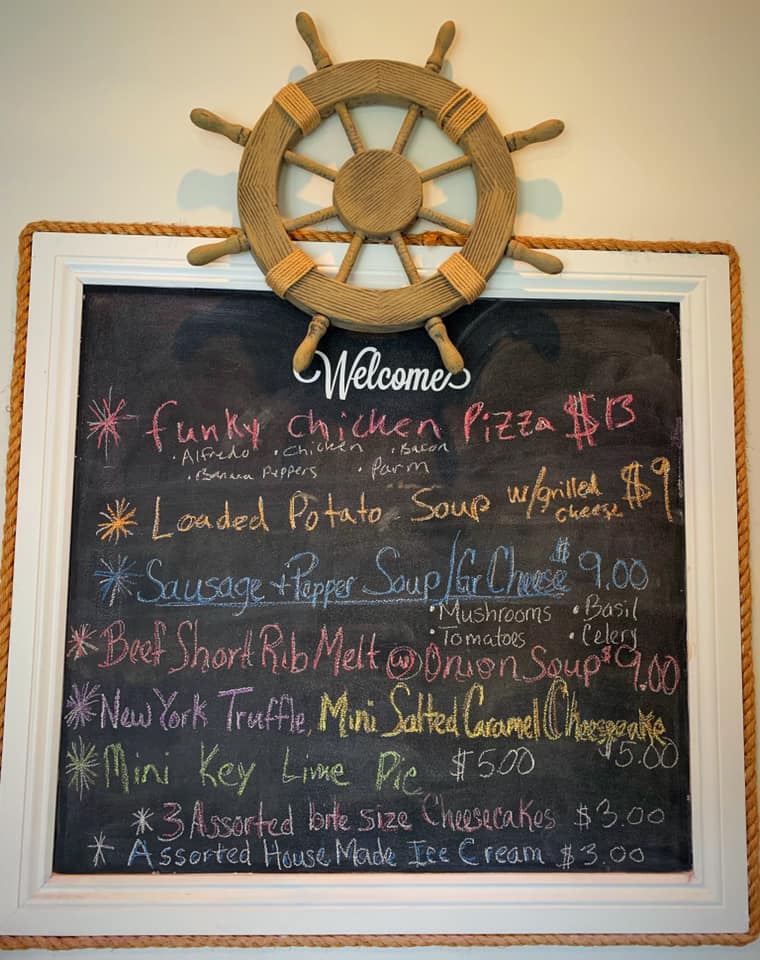 Welcome
* funky chicken Pizza $13
• Alfredo • Chicken • Bacon
• Banana Peppers • Parm
* Loaded Potato Soup w/grilled cheese $9
* Sausage + Pepper Soup/Gr Cheese $9.00
• Mushrooms • Basil
• Tomatoes • Celery
* Beef Short Rib Melt w/ Onion Soup $9.00
* New York Truffle, Mini Salted Caramel Cheesecake $5.00
* Mini Key Lime Pie $5.00
* 3 Assorted bite size Cheesecakes $3.00
* Assorted House Made Ice Cream $3.00